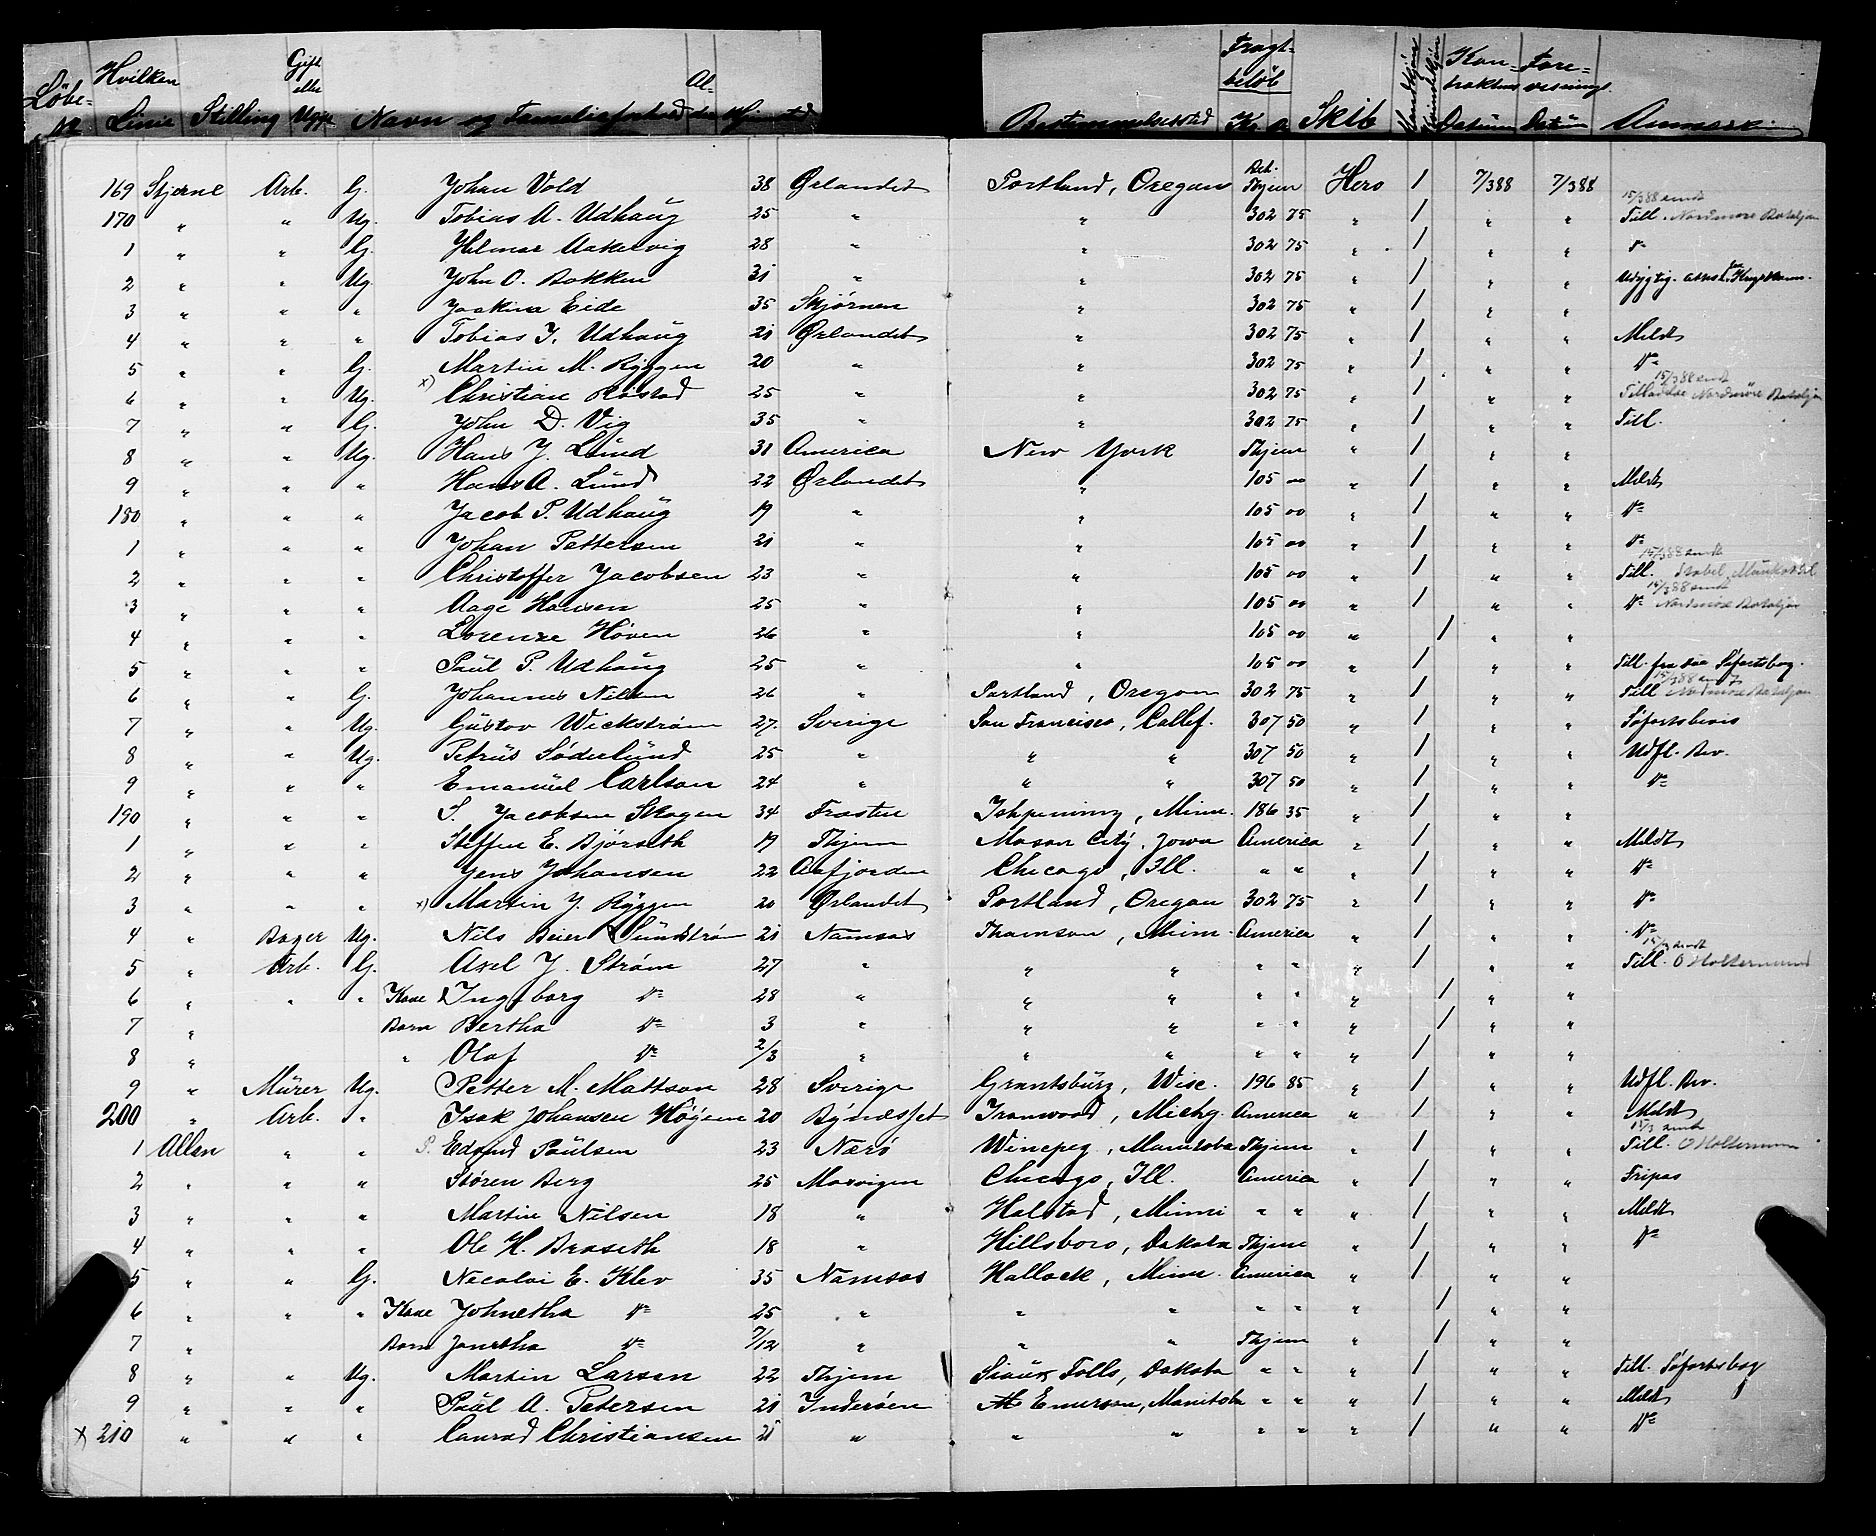 Löbe- No. Hvilken Linie Stilling Gift eller Ugift Navn og Familieforhold Al- der Bestemmelsessted Fragt- beløb Kr. ø Skib Mandkjøn Kvindekjøn Kon- traktens Datum Fore- visnings Datum Anmærk
169 Stjerne Arb. G. Johan Vold 38 Ørlandet Portland, Oregon Ret. Thjem Hero 1 7/3 88 7/3 88
170 " " Ug. Tobias A. Udhaug 25 " " 302 75 " 1 " " Till. 15/3 88 sendt Nordmøre Bataljon
1 " " G. Hilmar Aakervig 28 " " 302 75 " 1 " " Do
2 " " Ug. John O. Bakken 31 " " 302 75 " 1 " " Udygtig. attest
3 " " " Joakim Eide 35 Skjørnen " 302 75 " 1 " "
4 " " " Tobias J. Udhaug 21 Ørlandet " 302 75 " 1 " " Meldt
5 " " G. Martin M. Ryggen 20 " " 302 75 " 1 " " Do
6 " " Ug. x) Christian Røstad 25 " " 302 75 " 1 " " 15/3 88 sendt Tilladelse Nordmøre Bataljon
7 " " G. John D. Vig 35 " " 302 75 " 1 " " Till.
8 " " Ug. Hans J. Lund 31 America New York Thjem " 1 " "
9 " " " Hans A. Lund 22 Ørlandet " 105 00 " 1 " " Meldt
180 " " " Jacob P. Udhaug 19 " " 105 00 " 1 " " Do
1 " " " Johan Pettersen 21 " " 105 00 " 1 " " Do
2 " " " Christoffer Jacobsen 23 " " 105 00 " 1 " " 15/3 88 sendt Till.
3 " " " Aage Hansen 25 " " 105 00 " 1 " " 15/3 88 sendt Do Nordmøre Bataljon
4 " " " Lorenze Høven 26 " " 105 00 " 1 " "
5 " " " Paul P. Udhaug 25 " " 105 00 " 1 " " Till. fra Søfartsbog.
6 " " G. Johannes Nilsen 26 " Portland, Oregon 302 75 " 1 " " 15/3 88 sendt Till Nordmøre Bataljon
7 " " Ug. Gustav Wickstrøm 27. Sverige San Francisco, Callif. 307 50 " 1 " " Søfartsbevis
8 " " Ug. Petrus Söderlund 25 " " " 307 50 " 1 " " Udfl. Bev.
9 " " " Emanuel Carlson 24 " " " 307 50 " 1 " " Do
190 " " " S. Jacobsen Skogen 34 Frosten Ishpeming, Minn. 186 35 " 1 " "
1 " " " Steffen E. Bjørseth 19 Thjem Mason City, Jowa America " 1 " " Meldt
2 " " " Jens Johansen 22 Aafjorden Chicago, Ill. " " " 1 " " Do
3 " " " x) Martin J. Ryggen 20 Ørlandet Portland, Oregon 302 75 " 1 " " Do
4 " Bager Ug. Nils Beier Sundstrøm 21 Namsos Thomson, Minn. America " 1 " " Do
5 " Arb. G. Axel J. Strøm 27 " " " " " " 1 " " 15/3 sendt Till. O Holtermann
6 " " " Kone Ingeborg Do 28 " " " " " " 1 " "
7 " Barn Bertha Do 3 " " " " " " 1 " "
8 " " Olaf Do 2/3 " " " " " " 1 " "
9 " Murer Ug. Petter M. Mattson 28 Sverige Grantsburg, Wisc. 196 85 " 1 " " Udfl. Bev.
200 " Arb. " Isak Johansen Høyem 20 Bynæsset Ironwood, Michg. America " 1 " " Meldt
1 Allan " " P. Edvard Paulsen 23 Nærø Winepeg, Manitoba Thjem " 1 " " 15/3 sendt Till. O Holtermann
2 " " " Søren Berg 25 Mosvigen Chicago, Ill. America " 1 " " Fripas
3 " " " Martin Nilsen 18 " Halstad, Minni " " " 1 " " Meldt
4 " " " Ole H. Braseth 18 " Hillsboro, Dakota Thjem " 1 " " Do
5 " " G. Necolai E. Klev 35 Namsos Hallock, Minn. America " 1 " "
6 " " " Kone Johnetha Do 25 " " " " " " 1 " "
7 " Barn Do 7/12 " " " Thjem " 1 " "
8 " " Ug. Martin Larsen 22 Thjem Sioux Falls, Dakota " " " 1 " " Till. Søfartsbog
9 " " " Paul A. Petersen 21 Inderøen Emerson, Manitoba " " " 1 " " Meldt
x 210 " " " Conrad Christiansen 21 " " " " " " 1 " " Do